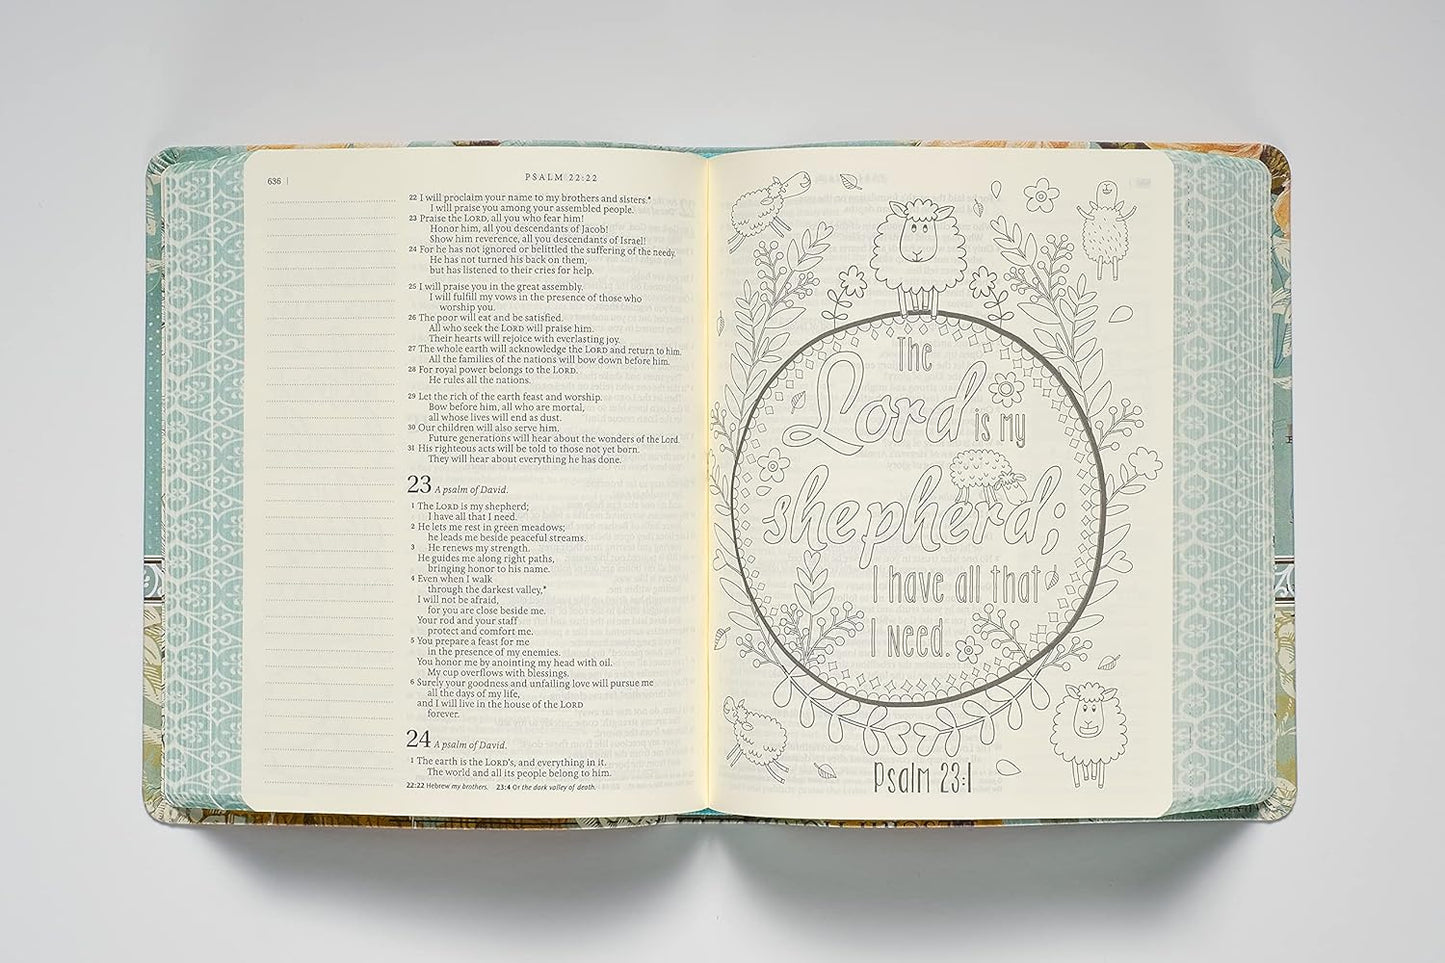 636 |
PSALM 22:22
22 I will proclaim your name to my brothers and sisters.*
I will praise you among your assembled people.
23 Praise the LORD, all you who fear him!
Honor him, all you descendants of Jacob!
Show him reverence, all you descendants of Israel!
24 For he has not ignored or belittled the suffering of the needy.
He has not turned his back on them,
but has listened to their cries for help.
25 I will praise you in the great assembly.
I will fulfill my vows in the presence of those who
worship you.
26 The poor will eat and be satisfied.
All who seek the LORD will praise him.
Their hearts will rejoice with everlasting joy.
27 The whole earth will acknowledge the LORD and return to him.
All the families of the nations will bow down before him.
28 For royal power belongs to the LORD.
He rules all the nations.
29 Let the rich of the earth feast and worship.
Bow before him, all who are mortal,
all whose lives will end as dust.
30 Our children will also serve him.
Future generations will hear about the wonders of the Lord.
31 His righteous acts will be told to those not yet born.
They will hear about everything he has done.
23 A psalm of David.
1 The LORD is my shepherd;
I have all that I need.
2 He lets me rest in green meadows;
he leads me beside peaceful streams.
3 He renews my strength.
He guides me along right paths,
bringing honor to his name.
4 Even when I walk
through the darkest valley,*
I will not be afraid,
for you are close beside me.
Your rod and your staff
protect and comfort me.
5 You prepare a feast for me
in the presence of my enemies.
You honor me by anointing my head with oil.
My cup overflows with blessings.
6 Surely your goodness and unfailing love will pursue me
all the days of my life,
and I will live in the house of the LORD
forever.
24 A psalm of David.
1 The earth is the LORD's, and everything in it.
The world and all its people belong to him.
22:22 Hebrew my brothers. 23:4 Or the dark valley of death.
The
Lord is my
shepherd;
I have all that
I need.
Psalm 23:1